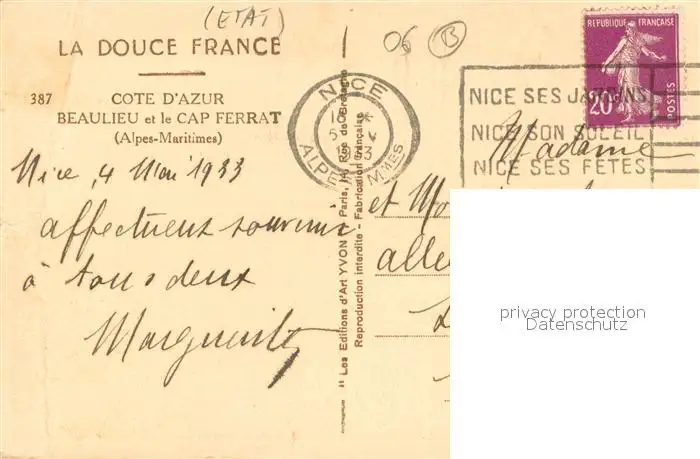 (ETAT)
06 B
LA DOUCE FRANCE
387 COTE D'AZUR
BEAULIEU et le CAP FERRAT
(Alpes-Maritimes)
Nice, 4 Mai 1933
affectueux souvenir
à tous deux
Marguerite
" Les Editions d'Art YVON " Paris, Rue de Bretagne
Reproduction interdite - Fabrication Française
NICE
ALPES MMES
NICE SES JARDINS
NICE SON SOLEIL
NICE SES FÊTES
REPUBLIQUE FRANÇAISE
20
POSTES
Madame
et
privacy protection
Datenschutz